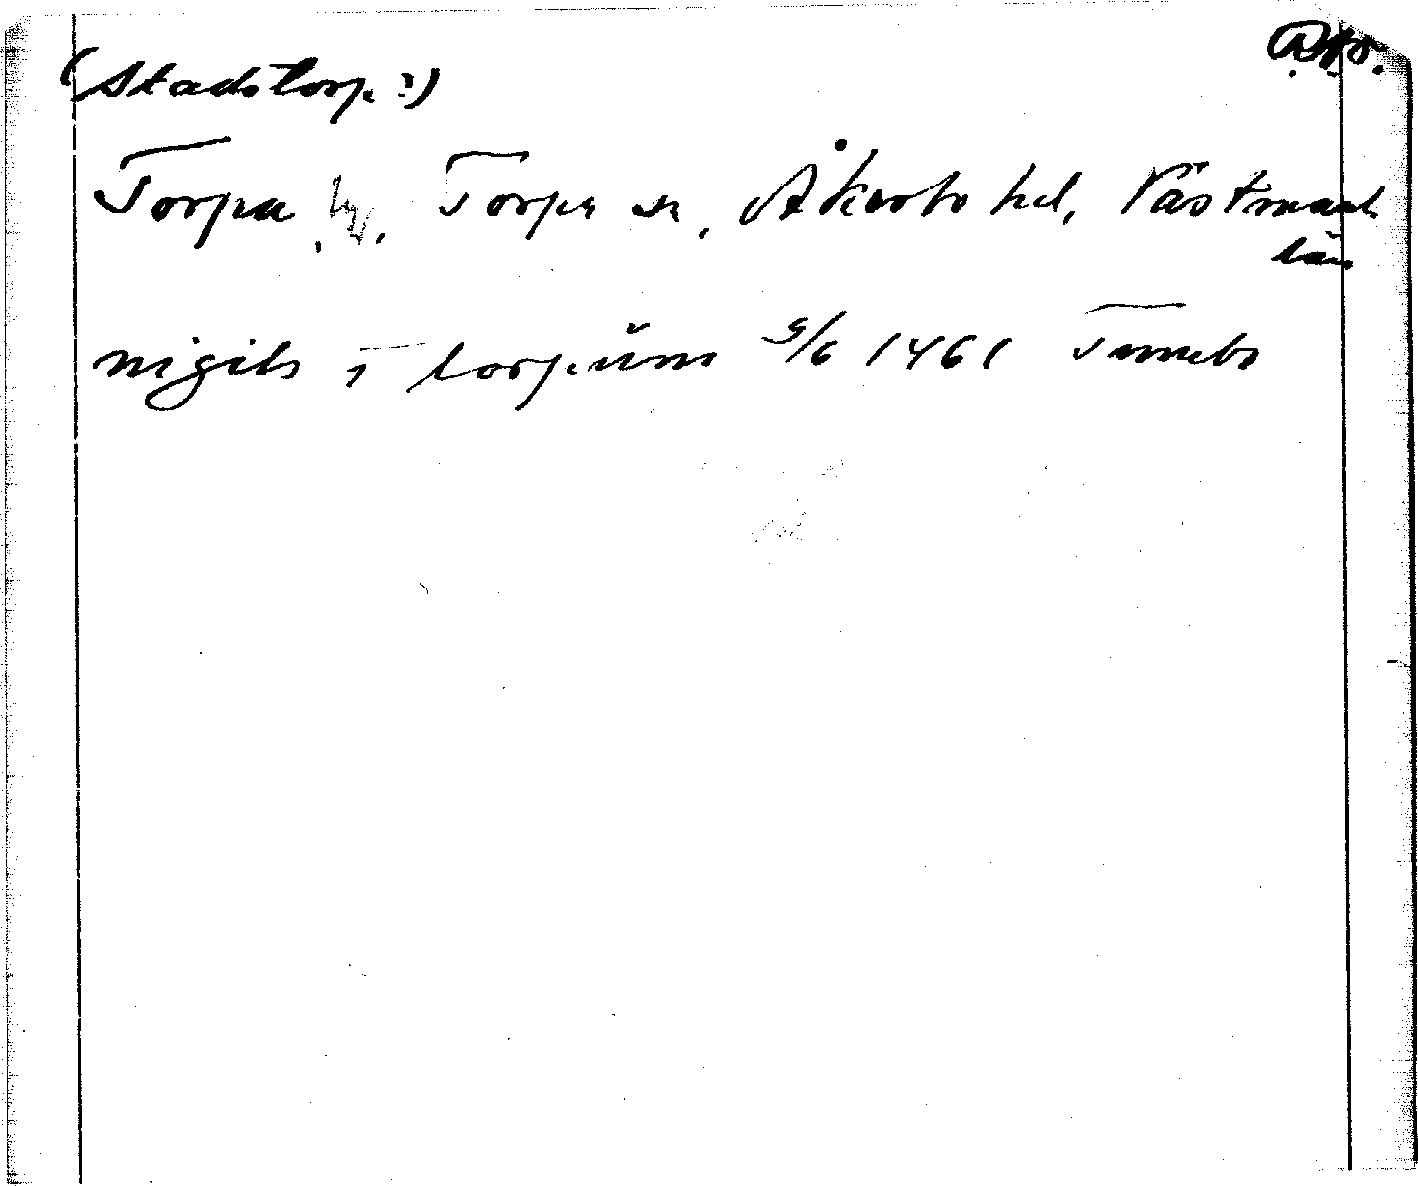 (Stadstorp?)
Torpa, by, Torpa sn, Åkerbo hd, Västmanl
län
nigils i torpum 5/6 1461 Tuneb